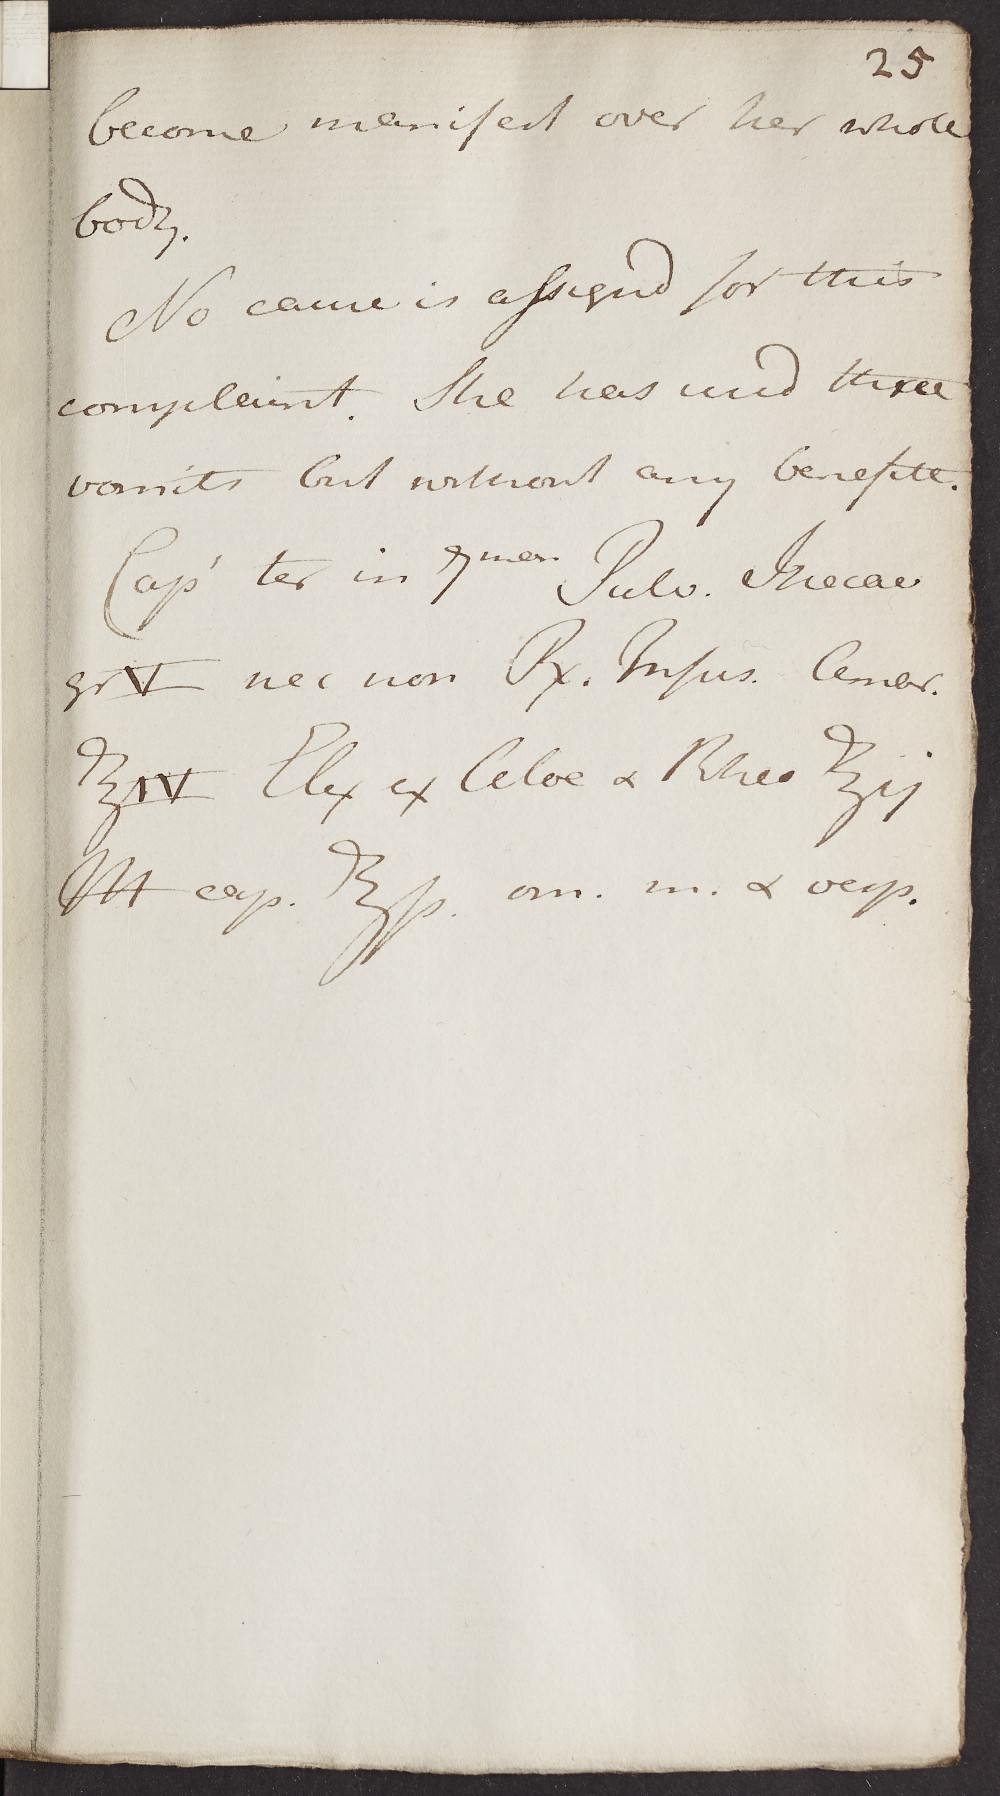 25
become manifest over her whole
body.
No cause is assignd for this
complaint. She has usd three
vomits but without any benefite.
Cap' ter in 7man Pulv. Ipecac
gr V nec non Rx. Infus. Amar.
℥IV Elix ex Aloe & Rheo ℥ij
M cap. ℥ſs. om. m. & vesp.